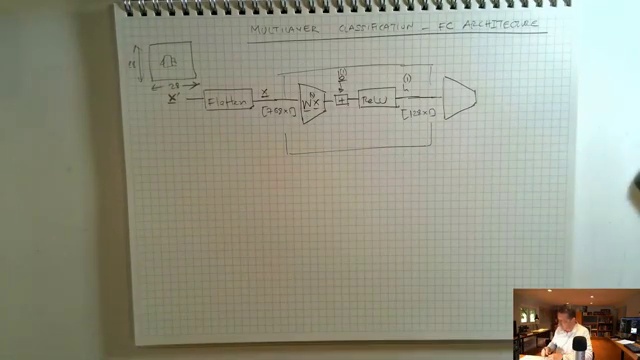 MULTILAYER CLASSIFICATION - FC ARCHITECTURE
28
28
x' Flatten x W x + ReLU
[768x1] [128x1]